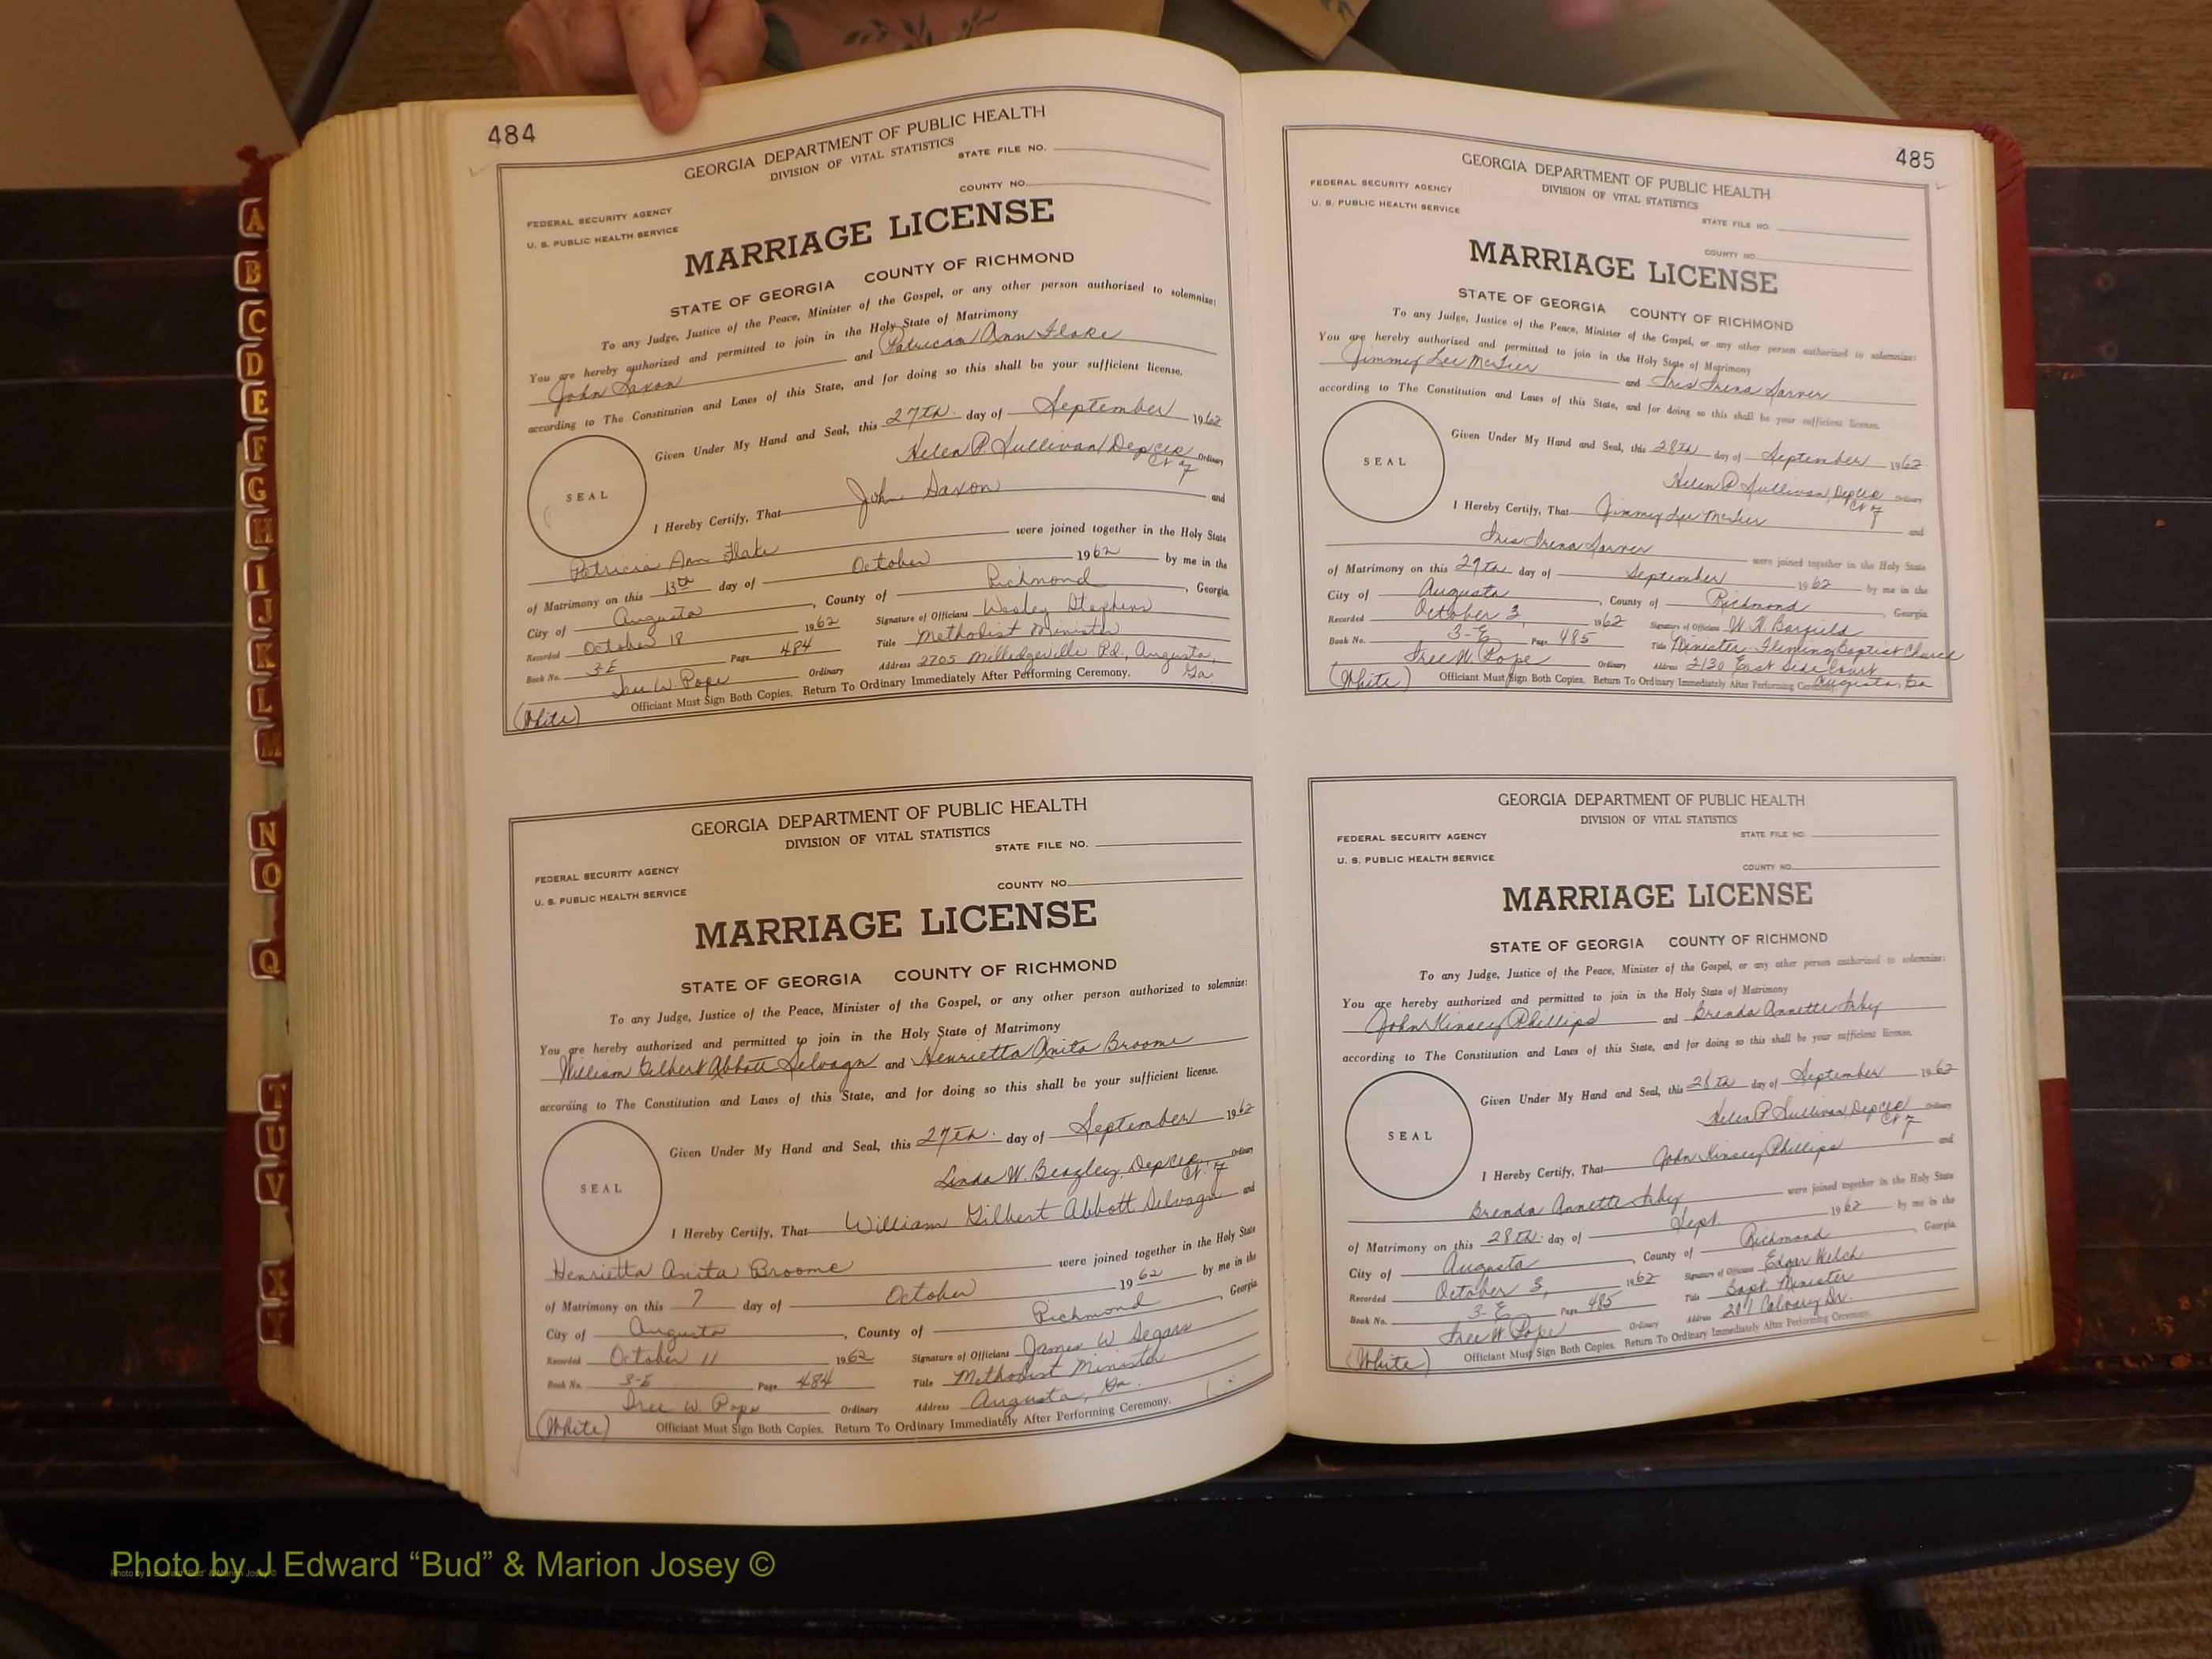 484
GEORGIA DEPARTMENT OF PUBLIC HEALTH
DIVISION OF VITAL STATISTICS
STATE FILE NO.
COUNTY NO.
FEDERAL SECURITY AGENCY
U. S. PUBLIC HEALTH SERVICE
MARRIAGE LICENSE
STATE OF GEORGIA COUNTY OF RICHMOND
To any Judge, Justice of the Peace, Minister of the Gospel, or any other person authorized to solemnize:
You are hereby authorized and permitted to join in the Holy State of Matrimony
John Saxon and Patricia Ann Flake
according to The Constitution and Laws of this State, and for doing so this shall be your sufficient license.
Given Under My Hand and Seal, this 27th. day of September 1962
Helen P. Sullivan, Dep Clk Ordinary
Ct of
SEAL
I Hereby Certify, That John Saxon and
Patricia Ann Flake were joined together in the Holy State
of Matrimony on this 13th day of October 1962 by me in the
City of Augusta, County of Richmond, Georgia.
Recorded October 18 1962 Signature of Officiant Wesley Stephens
Book No. 3-E Page 484 Title Methodist Minister
Ordinary Address 2705 Milledgeville Rd., Augusta, Ga.
W. Pope
(White) Officiant Must Sign Both Copies. Return To Ordinary Immediately After Performing Ceremony.
GEORGIA DEPARTMENT OF PUBLIC HEALTH
DIVISION OF VITAL STATISTICS
STATE FILE NO.
COUNTY NO.
FEDERAL SECURITY AGENCY
U. S. PUBLIC HEALTH SERVICE
MARRIAGE LICENSE
STATE OF GEORGIA COUNTY OF RICHMOND
To any Judge, Justice of the Peace, Minister of the Gospel, or any other person authorized to solemnize:
You are hereby authorized and permitted to join in the Holy State of Matrimony
William Gilbert Abbott Selvagn and Henrietta Anita Broome
according to The Constitution and Laws of this State, and for doing so this shall be your sufficient license.
Given Under My Hand and Seal, this 27th. day of September 1962
Linda W. Beazley, Dep Clk Ordinary
Ct. of
SEAL
I Hereby Certify, That William Gilbert Abbott Selvagn and
Henrietta Anita Broome were joined together in the Holy State
of Matrimony on this 7 day of October 1962 by me in the
City of Augusta, County of Richmond, Georgia
Recorded October 11 1962 Signature of Officiant James W Segars
Book No. 3-E Page 484 Title Methodist Minister
W. Pope Ordinary Address Augusta, Ga.
(White) Officiant Must Sign Both Copies. Return To Ordinary Immediately After Performing Ceremony.
485
GEORGIA DEPARTMENT OF PUBLIC HEALTH
DIVISION OF VITAL STATISTICS
FEDERAL SECURITY AGENCY
U. S. PUBLIC HEALTH SERVICE
STATE FILE NO.
COUNTY NO.
MARRIAGE LICENSE
STATE OF GEORGIA COUNTY OF RICHMOND
To any Judge, Justice of the Peace, Minister of the Gospel, or any other person authorized to solemnize:
You are hereby authorized and permitted to join in the Holy State of Matrimony
Jimmy Lee McTier and Iris Irena Sarver
according to The Constitution and Laws of this State, and for doing so this shall be your sufficient license.
Given Under My Hand and Seal, this 28th day of September 1962
Helen P Sullivan, Dep Clk Ordinary
Ct of
SEAL
I Hereby Certify, That Jimmy Lee McTier and
Iris Irena Sarver were joined together in the Holy State
of Matrimony on this 29th day of September 1962 by me in the
City of Augusta, County of Richmond, Georgia
Recorded October 3, 1962 Signature of Officiant W. H Barfield
Book No. 3-E Page 485 Title Minister-Fleming Baptist Church
W. Pope Ordinary Address 2130 East Side Court
Augusta, Ga
(White) Officiant Must Sign Both Copies. Return To Ordinary Immediately After Performing Ceremony.
GEORGIA DEPARTMENT OF PUBLIC HEALTH
DIVISION OF VITAL STATISTICS
FEDERAL SECURITY AGENCY
U. S. PUBLIC HEALTH SERVICE
STATE FILE NO.
COUNTY NO.
MARRIAGE LICENSE
STATE OF GEORGIA COUNTY OF RICHMOND
To any Judge, Justice of the Peace, Minister of the Gospel, or any other person authorized to solemnize:
You are hereby authorized and permitted to join in the Holy State of Matrimony
John Kinsey Phillips and Brenda Annette
according to The Constitution and Laws of this State, and for doing so this shall be your sufficient license.
Given Under My Hand and Seal, this 28th day of September 1962
Helen P. Sullivan, Dep Clk Ordinary
Ct of
SEAL
I Hereby Certify, That John Kinsey Phillips and
Brenda Annette were joined together in the Holy State
of Matrimony on this 28th. day of Sept. 1962 by me in the
City of Augusta, County of Richmond, Georgia
Recorded October 3, 1962 Signature of Officiant Edgar Welch
Book No. 3-E Page 485 Title Bapt Minister
W Pope Ordinary Address Calvary Dr.
(White) Officiant Must Sign Both Copies. Return To Ordinary Immediately After Performing Ceremony.
A
B
C
D
E
F
G
H
I
J
K
L
M
N
O
Q
T
U
V
X
Y
Photo by J Edward “Bud” & Marion Josey ©
Photo by J Edward "Bud" & Marion Josey ©